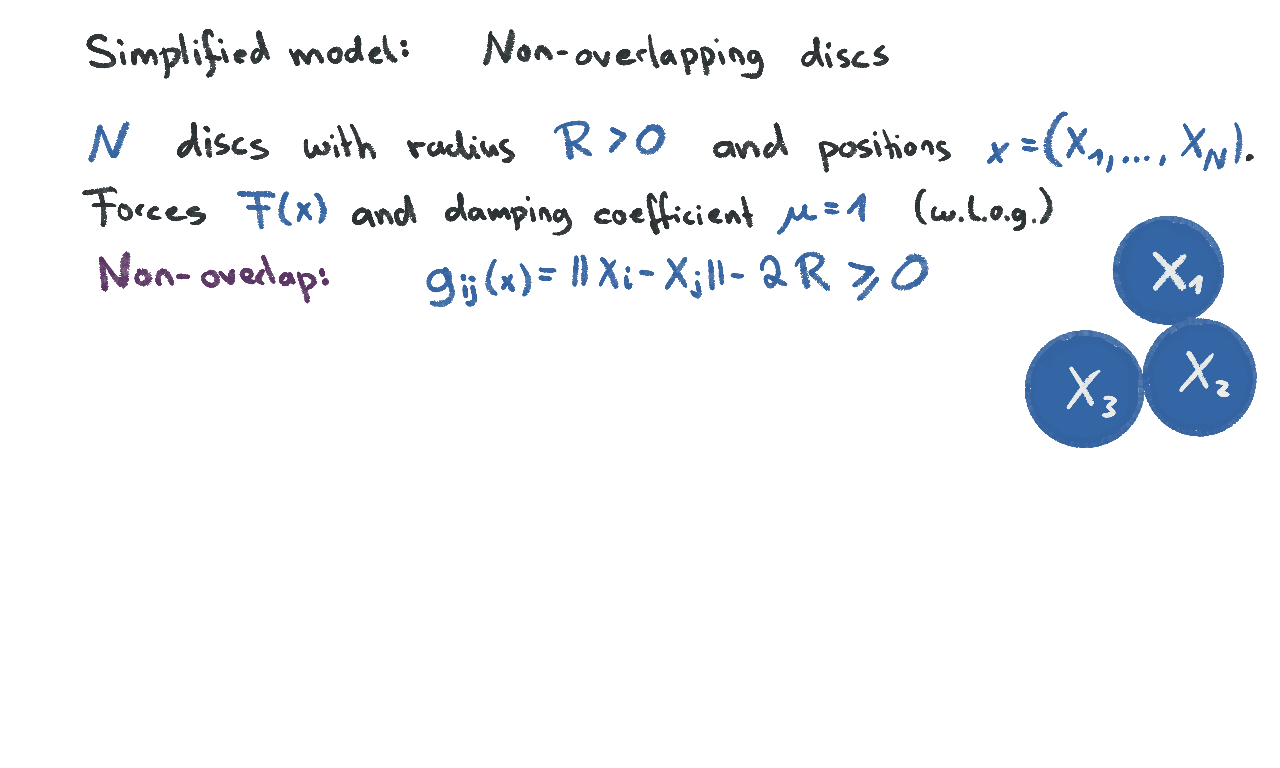 Simplified model: Non-overlapping discs
N discs with radius R > 0 and positions x = (X₁, ..., X_N).
Forces F(x) and damping coefficient μ = 1 (w.l.o.g.)
Non-overlap: g_ij(x) = ||X_i - X_j|| - 2R ⩾ 0
X₁
X₂
X₃